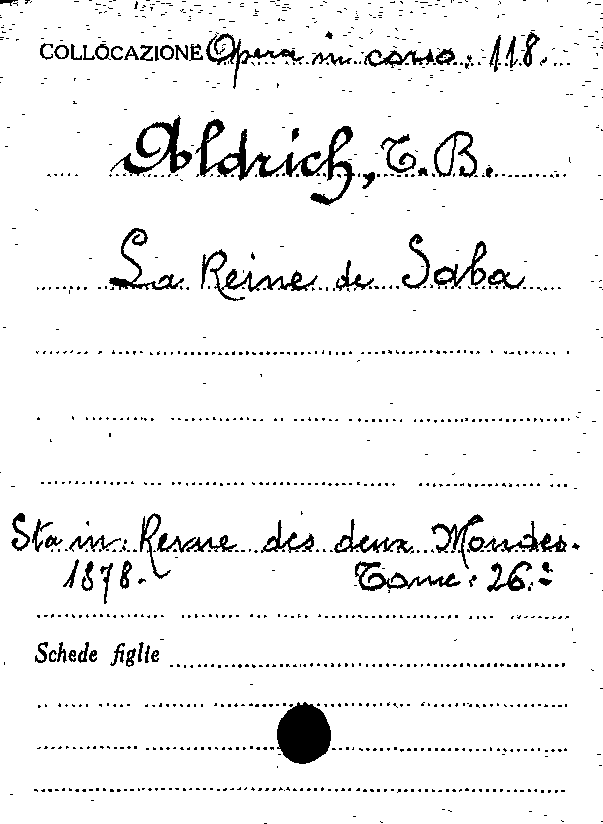 COLLOCAZIONE Opera in corso. 118.
Aldrich, T. B.
La Reine de Saba
Sta in: Revue des deux Mondes.
1878. Tome: 26.º
Schede figlie